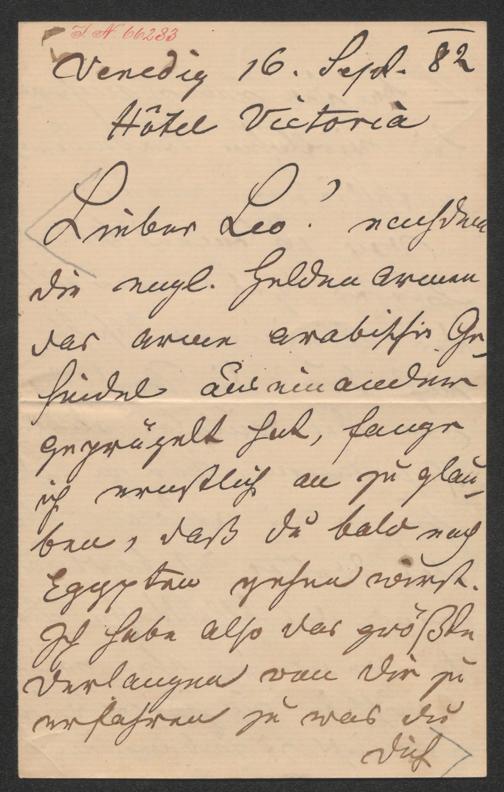 I N 66283
Venedig 16. Sept. 82
Hôtel Victoria
Lieber Leo! nachdem
die engl. Helden Armee
das arme arabische Ge-
sindel auseinander
geprügelt hat, fange
ich ernstlich an zu glau-
ben, daß du bald nach
Egypten gehen wirst.
Ich habe also das größte
Verlangen von dir zu
erfahren zu was du
dich